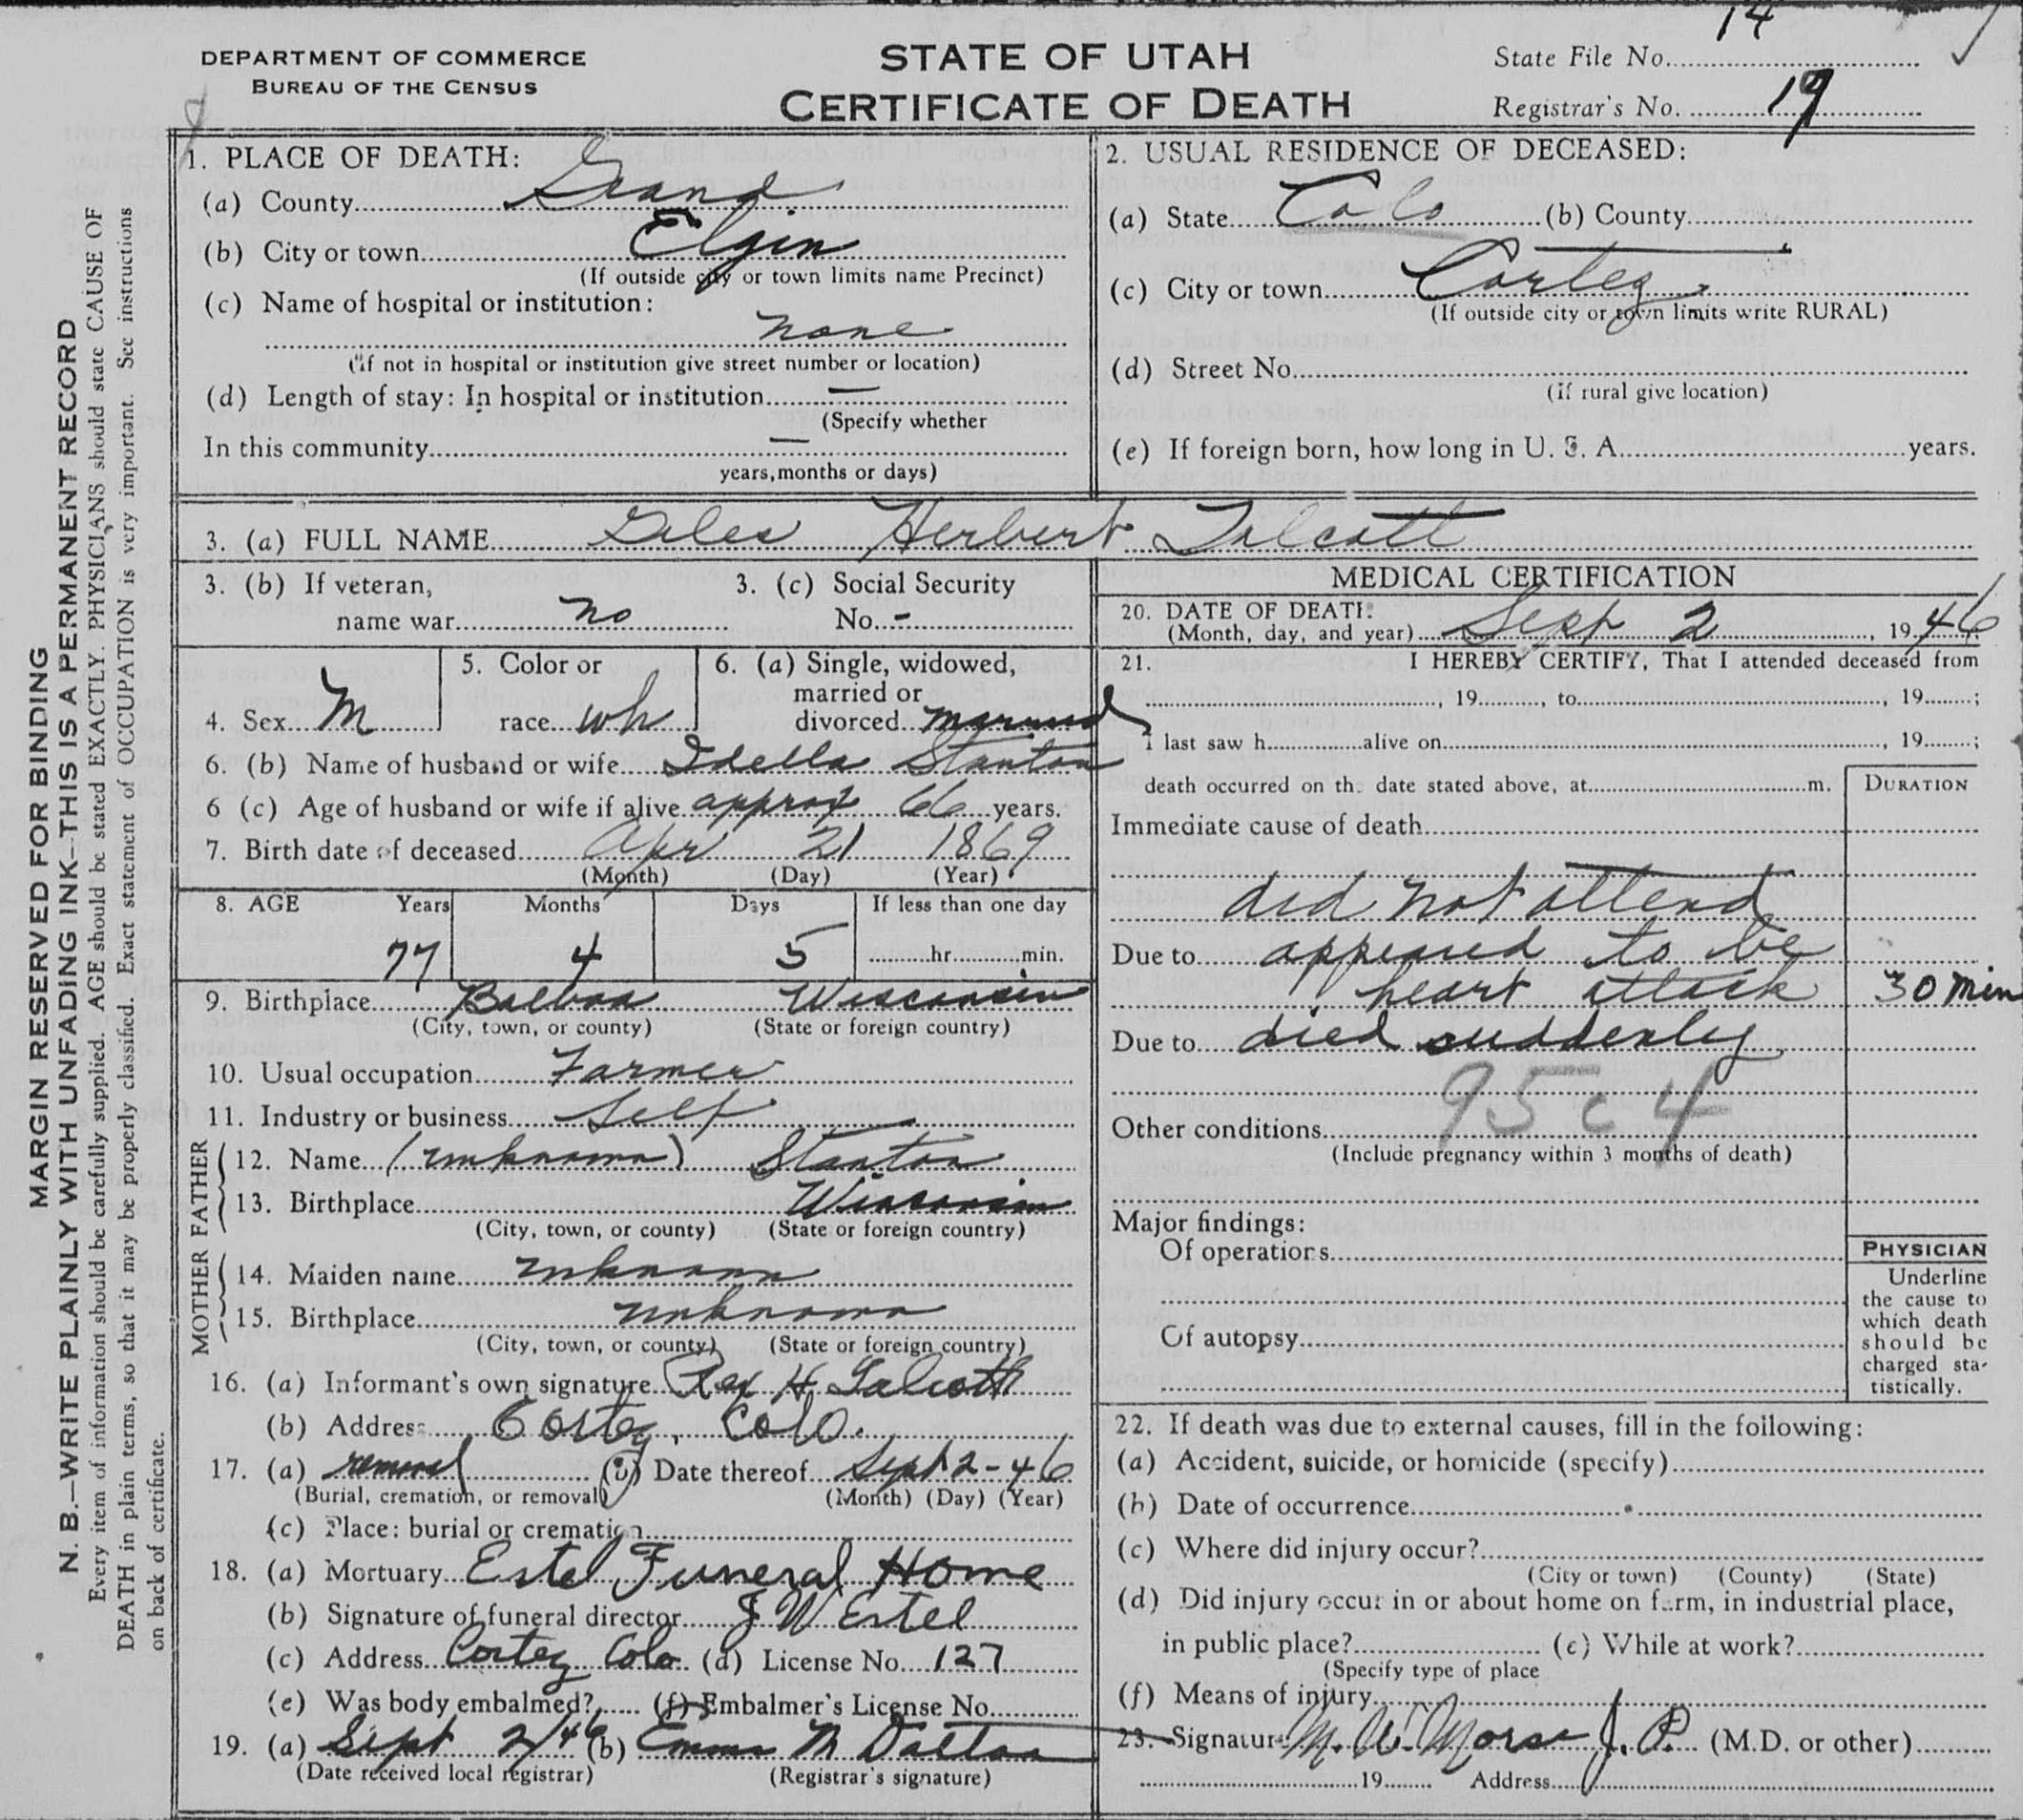 14
DEPARTMENT OF COMMERCE
BUREAU OF THE CENSUS
STATE OF UTAH
CERTIFICATE OF DEATH
State File No.
Registrar's No. 19
MARGIN RESERVED FOR BINDING
N. B.—WRITE PLAINLY WITH UNFADING INK—THIS IS A PERMANENT RECORD
Every item of information should be carefully supplied. AGE should be stated EXACTLY. PHYSICIANS should state CAUSE OF
DEATH in plain terms, so that it may be properly classified. Exact statement of OCCUPATION is very important. See instructions
on back of certificate.
1. PLACE OF DEATH:
(a) County Grand
(b) City or town Elgin
(If outside city or town limits name Precinct)
(c) Name of hospital or institution:
none
(If not in hospital or institution give street number or location)
(d) Length of stay: In hospital or institution —
(Specify whether
In this community —
years, months or days)
2. USUAL RESIDENCE OF DECEASED:
(a) State Colo (b) County
(c) City or town Cortez
(If outside city or town limits write RURAL)
(d) Street No.
(If rural give location)
(e) If foreign born, how long in U. S. A. years.
3. (a) FULL NAME Giles Herbert Talcott
3. (b) If veteran,
name war no
3. (c) Social Security
No. -
4. Sex M
5. Color or
race wh
6. (a) Single, widowed,
married or
divorced married
6. (b) Name of husband or wife Idella Stanton
6 (c) Age of husband or wife if alive approx 66 years.
7. Birth date of deceased Apr 21 1869
(Month) (Day) (Year)
8. AGE Years Months Days If less than one day
77 4 5 hr. min.
9. Birthplace Wisconsin
(City, town, or county) (State or foreign country)
10. Usual occupation Farmer
11. Industry or business Self
FATHER
12. Name (unknown) Stanton
13. Birthplace Wisconsin
(City, town, or county) (State or foreign country)
MOTHER
14. Maiden name unknown
15. Birthplace unknown
(City, town, or county) (State or foreign country)
16. (a) Informant's own signature Rex H. Talcott
(b) Address Cortez, Colo.
17. (a) removal (b) Date thereof Sept 2-46
(Burial, cremation, or removal) (Month) (Day) (Year)
(c) Place: burial or cremation
18. (a) Mortuary Ertel Funeral Home
(b) Signature of funeral director J W Ertel
(c) Address Cortez Colo (d) License No. 127
(e) Was body embalmed? (f) Embalmer's License No.
19. (a) Sept 2/46 (b) Emma M Dalton
(Date received local registrar) (Registrar's signature)
MEDICAL CERTIFICATION
20. DATE OF DEATH:
(Month, day, and year) Sept 2, 1946
21. I HEREBY CERTIFY, That I attended deceased from
, 19 , to , 19 ;
I last saw h alive on , 19 ;
death occurred on the date stated above, at m.
DURATION
Immediate cause of death
did not attend
Due to appeared to be
heart attack 30 min
Due to died suddenly
95c4
Other conditions
(Include pregnancy within 3 months of death)
Major findings:
Of operations
Of autopsy
PHYSICIAN
Underline
the cause to
which death
should be
charged sta-
tistically.
22. If death was due to external causes, fill in the following:
(a) Accident, suicide, or homicide (specify)
(b) Date of occurrence
(c) Where did injury occur?
(City or town) (County) (State)
(d) Did injury occur in or about home on farm, in industrial place,
in public place? (e) While at work?
(Specify type of place
(f) Means of injury
23. Signature M. W. Morse J. P. (M.D. or other)
19 Address